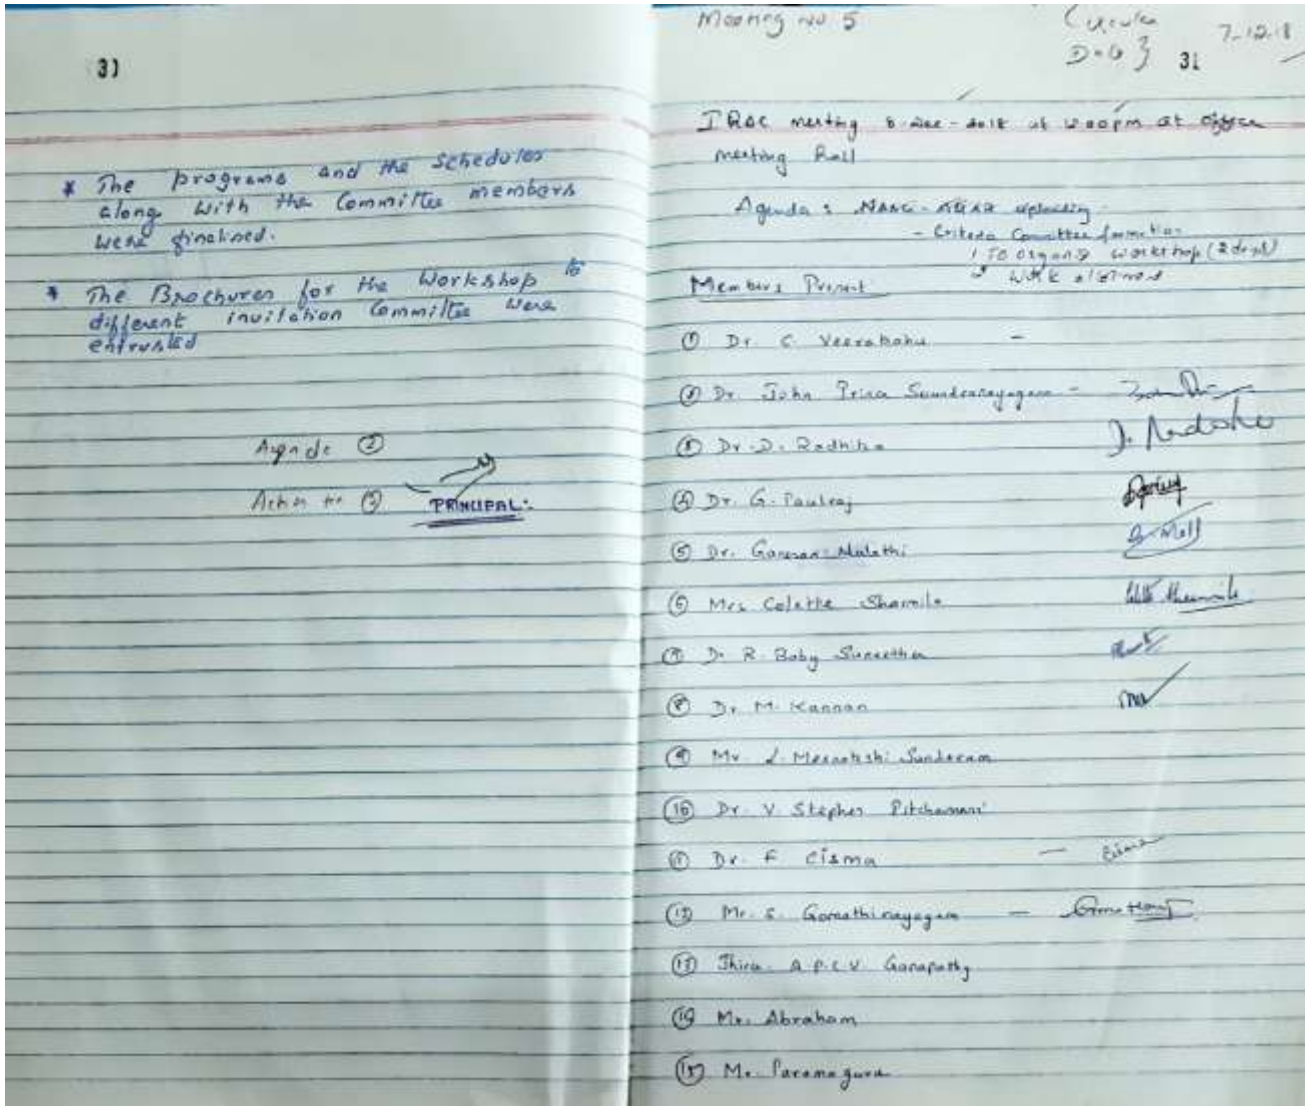 31
* The programs and the schedules
along with the Committee members
were finalined.
* The Brochures for the Workshop to
different invitation Committee were
entrusted
Agnde ②
Action ②
PRINCIPAL:
Meeting No 5
Circular
7-12-18
31
IQAC meeting 8-Dec-2018 at 12.00pm at office
meeting Hall
Agenda : NAAC - AQAR uploading
- Criteria Committee formation
To organise workshop (2 days)
Work alotment
Members Present
① Dr. C. Veerabahu -
② Dr. John Prince Soundranayagam -
③ Dr. D. Radhika
④ Dr. G. Paulraj
⑤ Dr. Ganesan Malathi
⑥ Mrs Colette Sharmila
⑦ Dr R. Baby Suneetha
⑧ Dr. M. Kannan
⑨ Mr. L. Meenakshi Sundaram
⑩ Dr. V. Stephen Pitchamani
⑪ Dr. F Cisma -
⑫ Mr. S. Gomathinayagam -
⑬ Thiru. A.P.C.V. Ganapathy
⑭ Mr. Abraham
⑮ Mr. Paramaguru